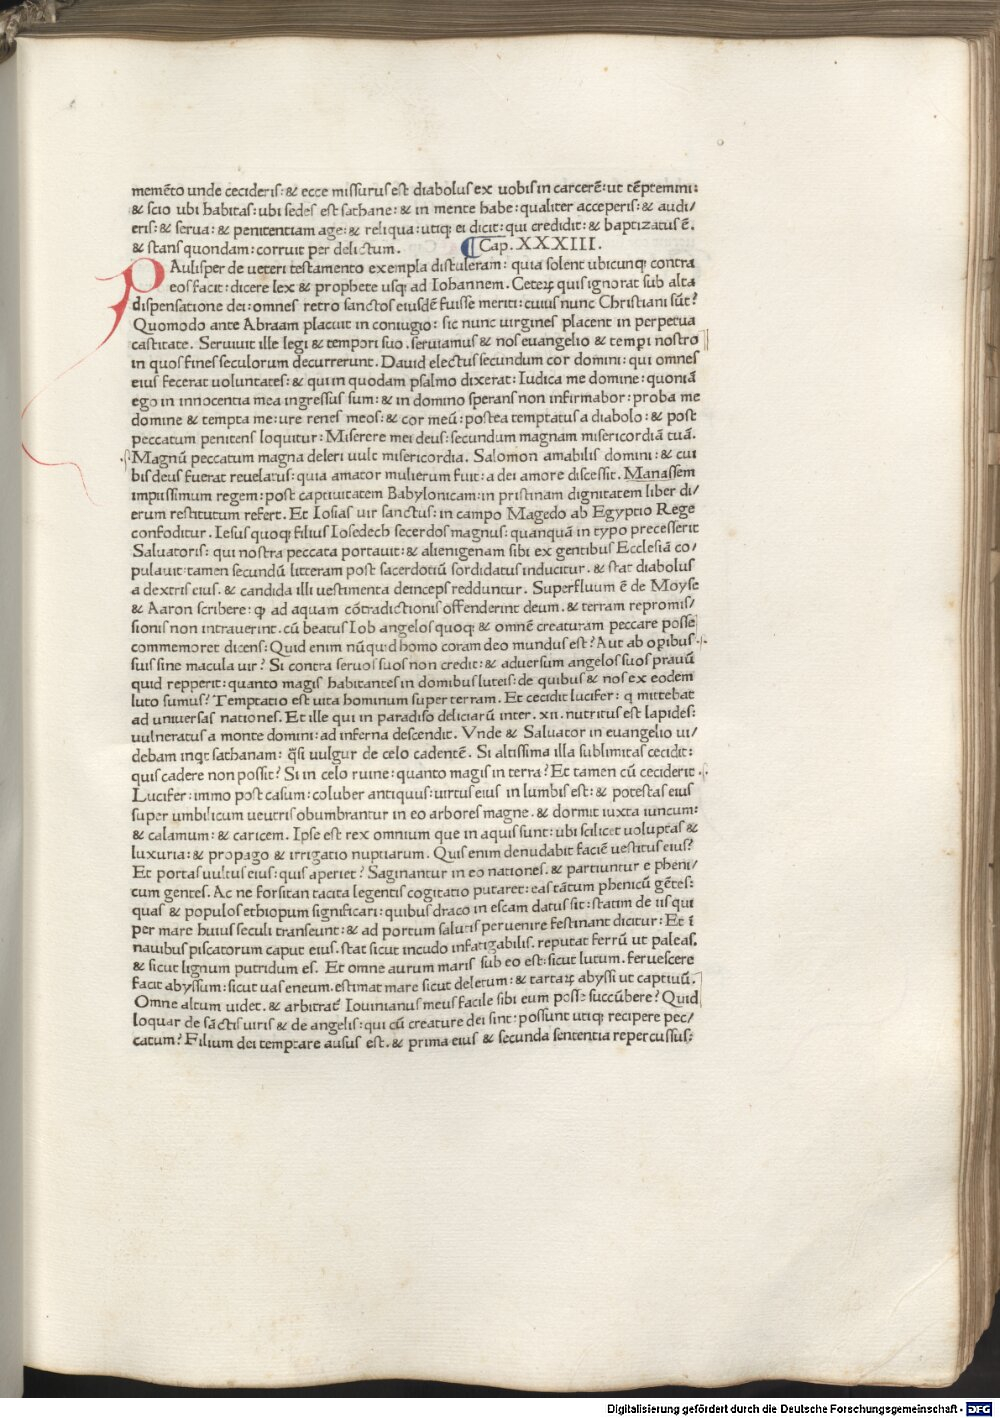 memēto unde cecideris: & ecce missurus est diabolus ex uobis in carcerē: ut tēptemini:
& scio ubi habitas: ubi sedes est sathane: & in mente habe: qualiter acceperis: & audi/
eris: & serua: & penitentiam age: & reliqua: utiqꝫ ei dicit: qui credidit: & baptizatus ē.
& stans quondam: corruit per delictum. Cap. XXXIII.
PAulisper de ueteri testamento exempla distuleram: quia solent ubicunqꝫ contra
eos facit: dicere lex & prophete usqꝫ ad Iohannem. Ceteꝝ quis ignorat sub alta
dispensatione dei: omnes retro sanctos eiusdē fuisse meriti: cuius nunc Christiani sūt?
Quomodo ante Abraam placuit in coniugio: sic nunc uirgines placent in perpetua
castitate. Seruiuit ille legi & tempori suo. seruiamus & nos euangelio & tempi nostro
in quos fines seculorum decurrerunt. Dauid electus secundum cor domini: qui omnes
eius fecerat uoluntates: & qui in quodam psalmo dixerat: Iudica me domine: quoniā
ego in innocentia mea ingressus sum: & in domino sperans non infirmabor: proba me
domine & tempta me: ure renes meos: & cor meū: postea temptatus a diabolo: & post
peccatum penitens loquitur: Miserere mei deus: secundum magnam misericordiā tuā.
Magnū peccatum magna deleri uult misericordia. Salomon amabilis domini: & cui
bis deus fuerat reuelatus: quia amator mulierum fuit: a dei amore discessit. Manassem
impiissimum regem: post captiuitatem Babylonicam: in pristinam dignitatem liber di/
erum restitutum refert. Et Iosias uir sanctus: in campo Magedo ab Egyptio Rege
confoditur. Iesus quoqꝫ filius Iosedech sacerdos magnus: quanquā in typo precesserit
Saluatoris: qui nostra peccata portauit: & alienigenam sibi ex gentibus Ecclesiā co/
pulauit: tamen secundū litteram post sacerdotiū sordidatus inducitur. & stat diabolus
a dextris eius. & candida illi uestimenta deinceps redduntur. Superfluum ē de Moyse
& Aaron scribere: ꝙ ad aquam cōtradictionis offenderint deum. & terram repromis/
sionis non intrauerint. cū beatus Iob angelos quoqꝫ & omnē creaturam peccare posse
commemoret dicens: Quid enim nūquid homo coram deo mundus est? Aut ab opibus
suis sine macula uir? Si contra seruos suos non credit: & aduersum angelos suos prauū
quid repperit: quanto magis habitantes in domibus luteis: de quibus & nos ex eodem
luto sumus? Temptatio est uita hominum super terram. Et cecidit lucifer: q mittebat
ad uniuersas nationes. Et ille qui in paradiso deliciarū inter .xii. nutritus est lapides:
uulneratus a monte domini: ad inferna descendit. Vnde & Saluator in euangelio ui/
debam inqt sathanam: q̄si uulgur de celo cadentē. Si altissima illa sublimitas cecidit:
quis cadere non possit? Si in celo ruine: quanto magis in terra? Et tamen cū ceciderit
Lucifer: immo post casum: coluber antiquus: uirtus eius in lumbis est: & potestas eius
super umbilicum ueutris obumbrantur in eo arbores magne. & dormit iuxta iuncum:
& calamum: & caricem. Ipse est rex omnium que in aquis sunt: ubi scilicet uoluptas &
luxuria: & propago & irrigatio nuptiarum. Quis enim denudabit faciē uestitus eius?
Et portas uultus eius: quis aperiet? Saginantur in eo nationes. & partiuntur e pheni/
cum gentes. Ac ne forsitan tacita legentis cogitatio putaret: eas tātum phenicū gētes:
quas & populos ethiopum significari: quibus draco in escam datus sit: statim de iis qui
per mare huius seculi transeunt: & ad portum salutis peruenire festinant dicitur: Et ī
nauibus piscatorum caput eius. stat sicut incudo infatigabilis. reputat ferrū ut paleas.
& sicut lignum putridum es. Et omne aurum maris sub eo est: sicut lutum. feruescere
facit abyssum: sicut uas eneum. estimat mare sicut deletum: & tartaꝝ abyssi ut captiuū.
Omne altum uidet. & arbitraĉ Iouinianus meus facile sibi eum posse succūbere? Quid
loquar de sāctis uiris & de angelis: qui cū creature dei sint: possunt utiqꝫ recipere pec/
catum? Filium dei temptare ausus est. & prima eius & secunda sententia repercussus:
Digitalisierung gefördert durch die Deutsche Forschungsgemeinschaft - DFG